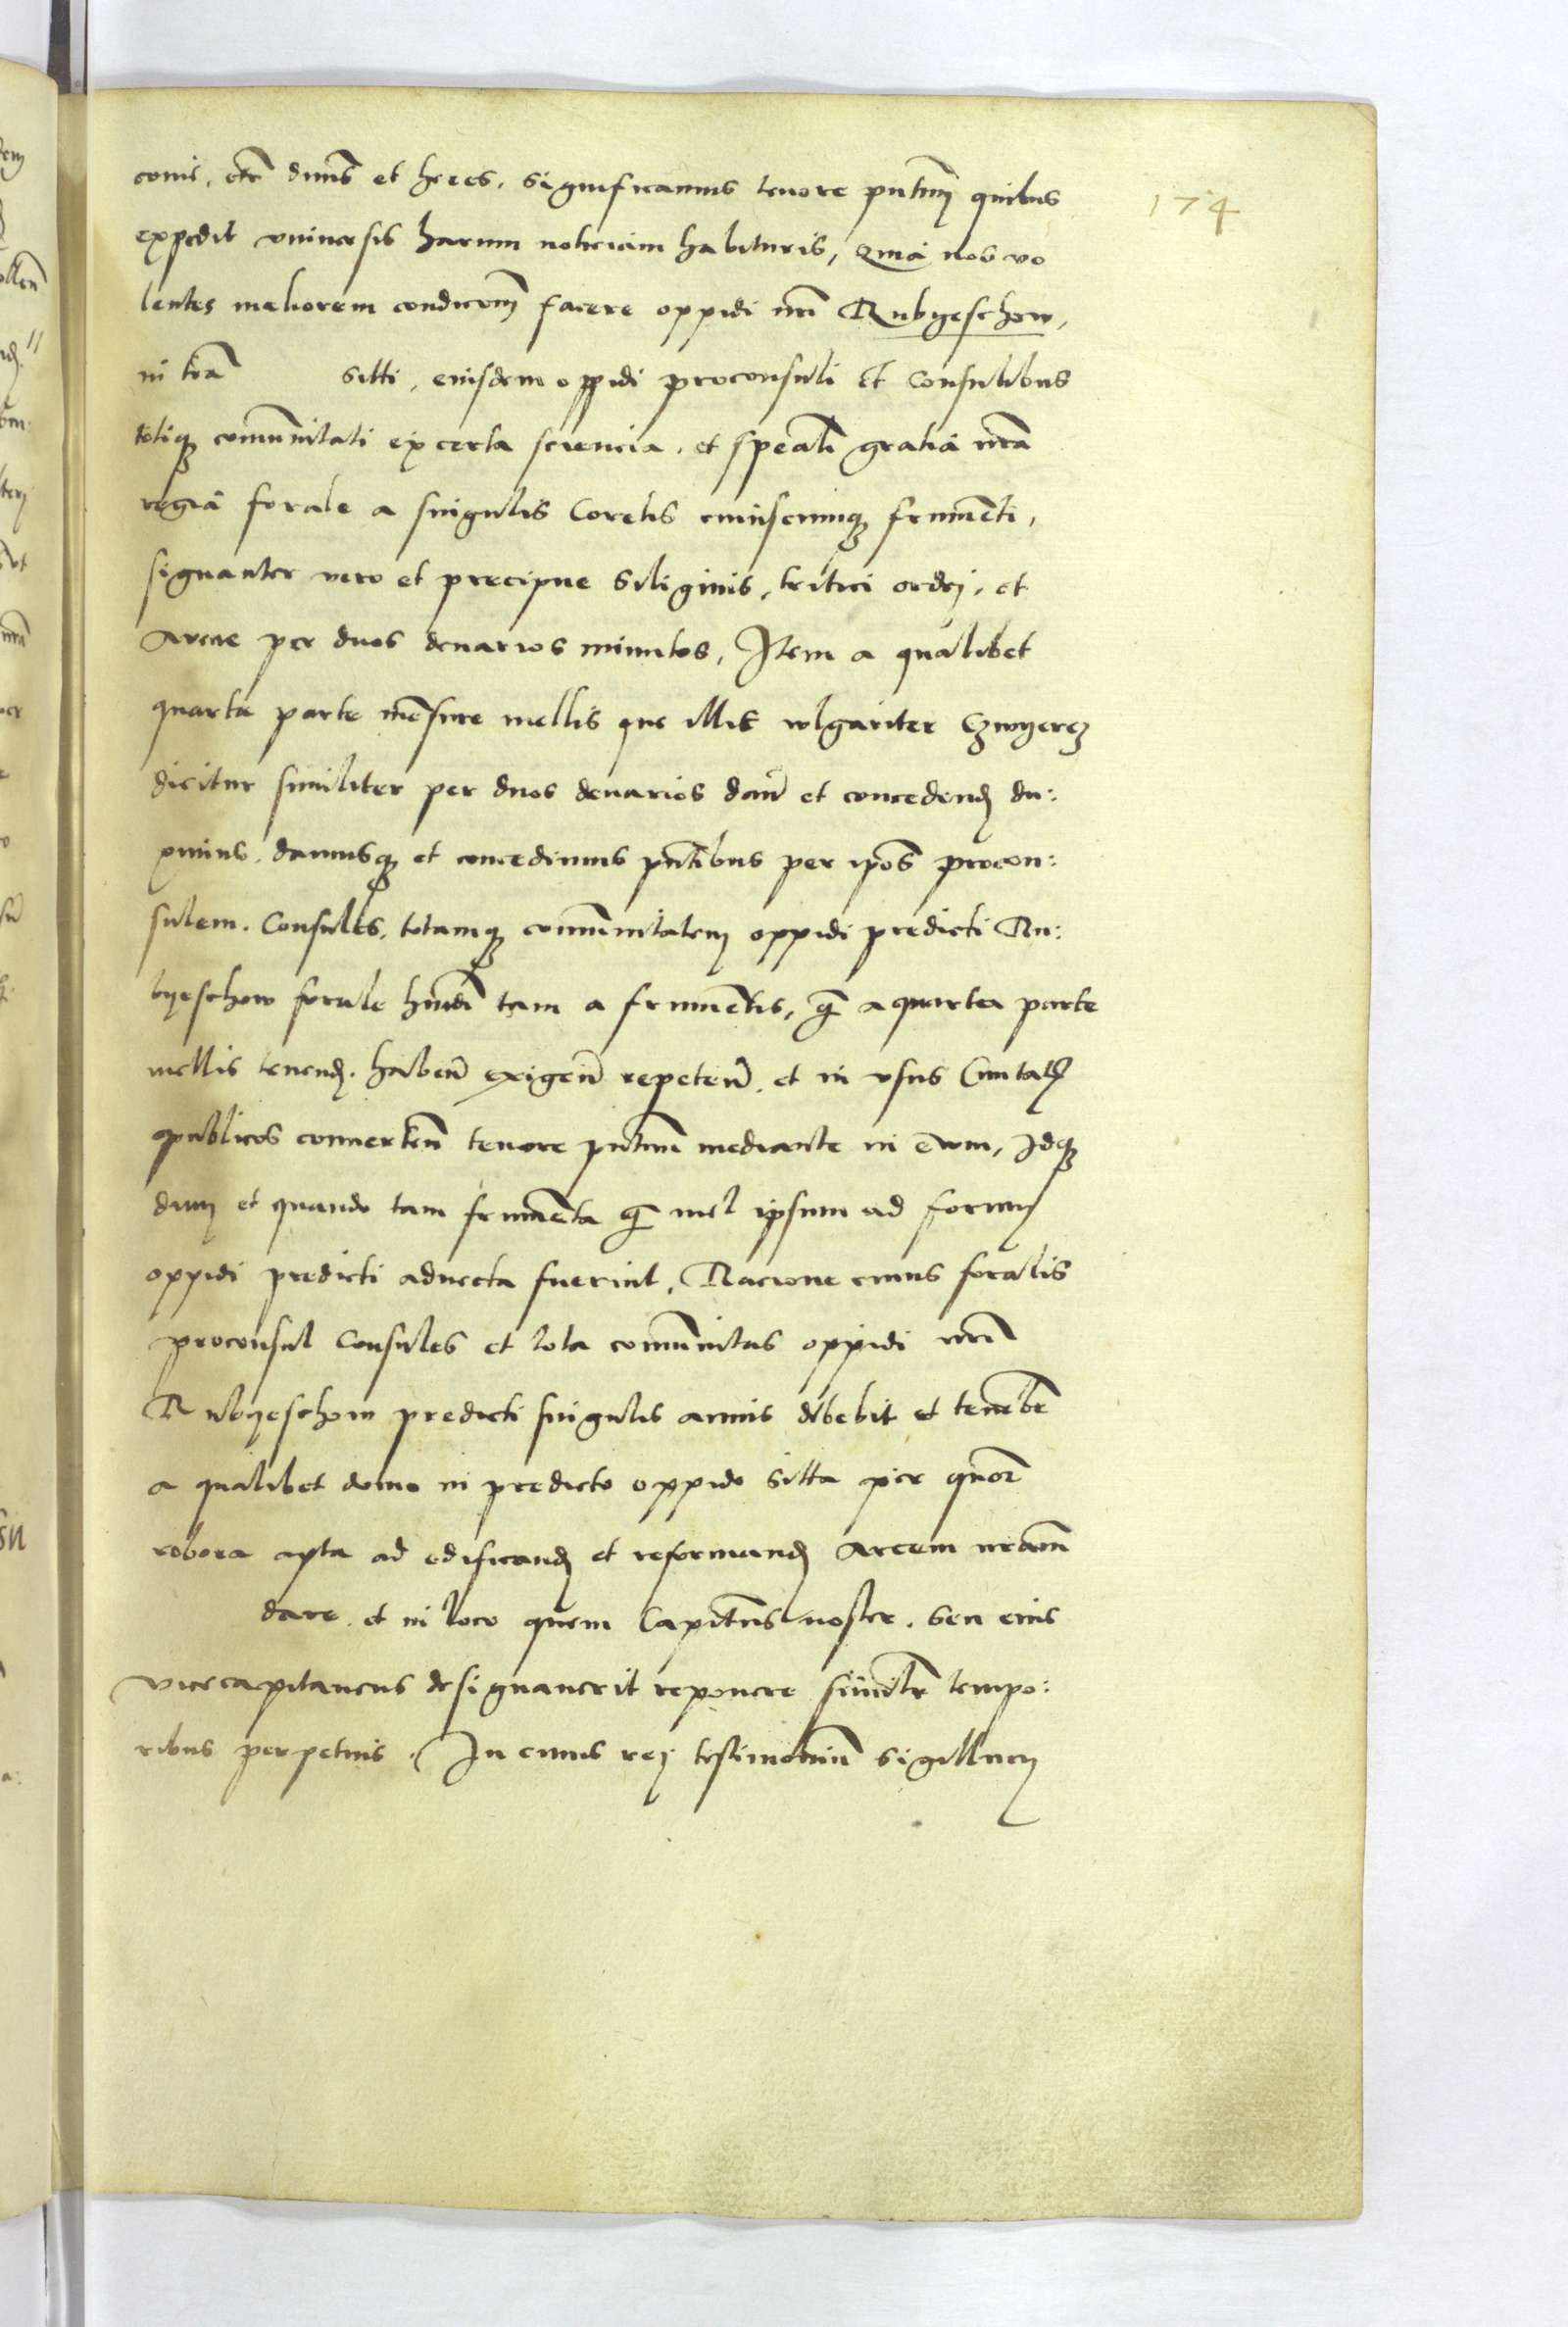 conie, etc dnus et heres. Significamus tenore pntium quibus
174
expedit vniuersis harum noticiam habituris, Quia nos vo
lentes meliorem condicionem facere oppidi nri Rubyeschow,
in tra sitti, eiusdem oppidi proconsuli Et Consulibus
totiq comunitati ex certa sciencia. et speali gratia nra
regia forale a singulis Coretis cuiuscunq frumenti,
signanter vero et precipue siliginis, tritici ordei, et
Avene per duos denarios minutos, Item a qualibet
quarta parte mesure mellis que illic wlgariter Czwyercz
dicitur similiter per duos denarios dan et concedend du:
ximus, damusq et concedimus pntibus per ipos procon:
sulem. Consules, totamq comunitatem oppidi predicti Ru:
byeschow forale hmdi tam a frumetis, q a quarta parte
mellis tenend. haben exigen repeten. et in vsus Ciuitatis
publicos conuerten tenore pntium mediante in ewm, Idq
dum et quando tam frumenta q mel ipsum ad forum
oppidi predicti aduecta fuerint, Racione cuius foralis
proconsul Consules et tota comunitas oppidi nri
Rubyeschow predicti singulis annis debebit et tenebr
a qualibet domo in predicto oppido sitta per quor
robora apta ad edificand et reformand Arcem nram
dare. et in loco quem Capitus noster. seu eius
vicecapitaneus designauerit reponere similr tempo:
ribus perpetuis. In cuius rei testimonium sigillum